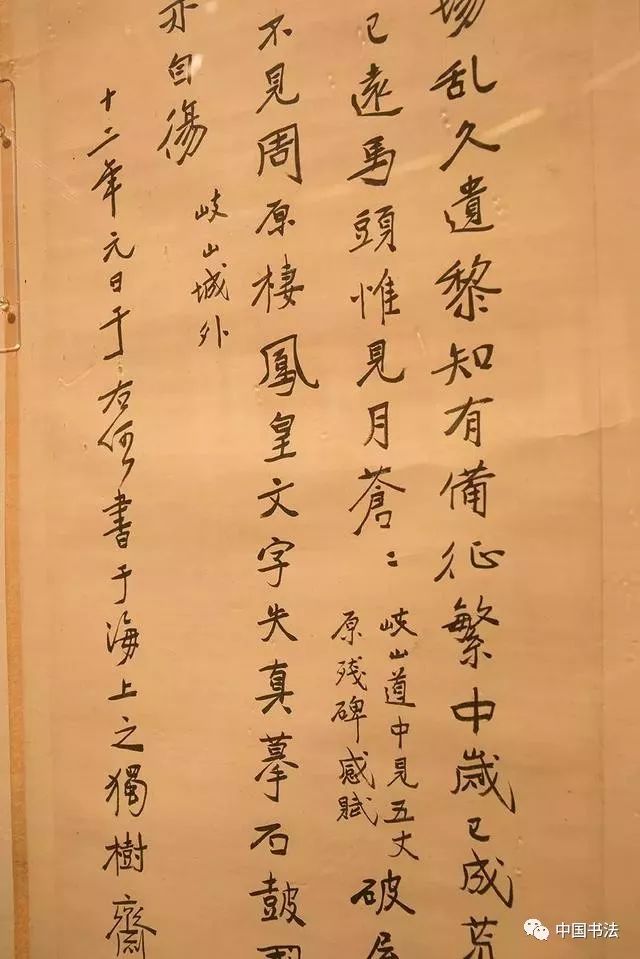 乱久遺黎知有備征繁中歲已成荒
已遠馬頭惟見月蒼〻
岐山道中見五丈
原残碑感賦
破屋
不見周原棲鳳皇文字失真摹石鼓
亦自傷
岐山城外
十二年元日于右任書于海上之獨樹齋
中国书法